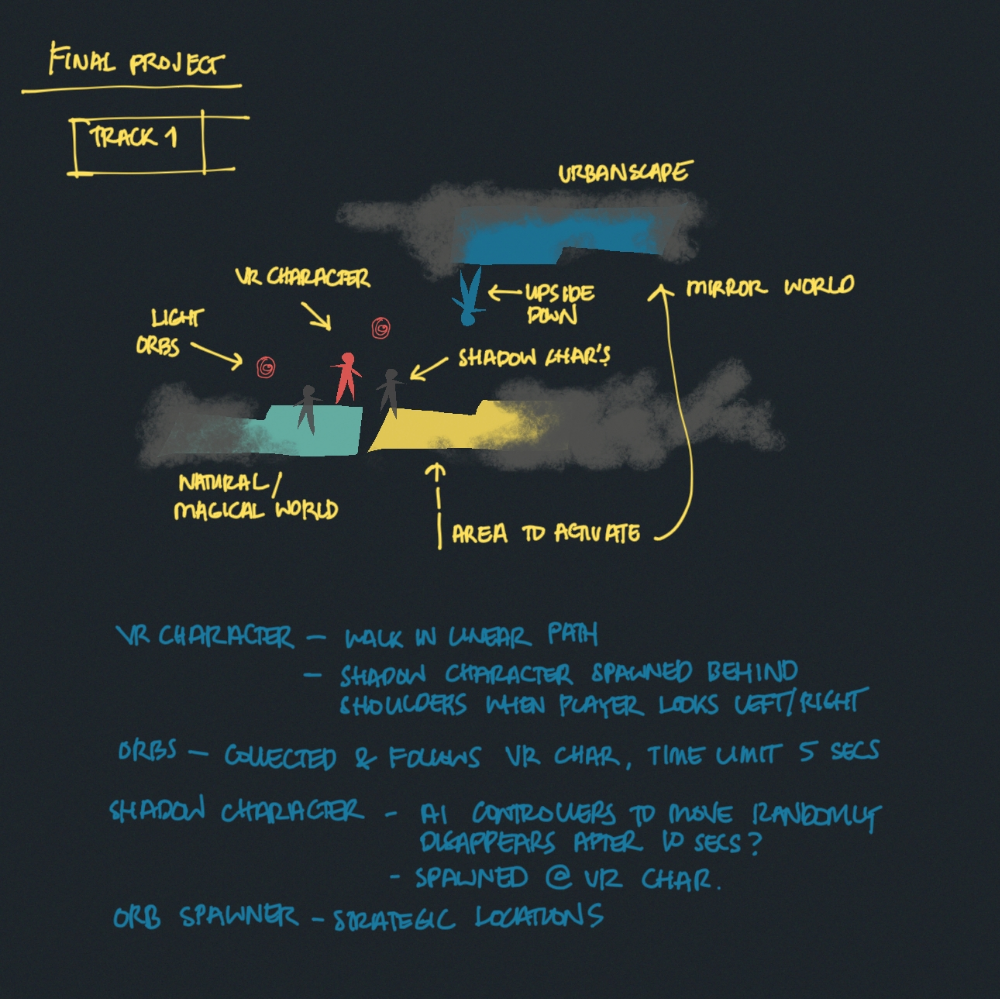 FINAL PROJECT
TRACK 1
URBANSCAPE
VR CHARACTER
MIRROR WORLD
UPSIDE
DOWN
LIGHT
ORBS
SHADOW CHAR'S
NATURAL/
MAGICAL WORLD
AREA TO ACTIVATE
VR CHARACTER – WALK IN LINEAR PATH
– SHADOW CHARACTER SPAWNED BEHIND
SHOULDERS WHEN PLAYER LOOKS LEFT/RIGHT
ORBS – COLLECTED & FOLLOWS VR CHAR, TIME LIMIT 5 SECS
SHADOW CHARACTER - AI CONTROLLERS TO MOVE RANDOMLY
DISAPPEARS AFTER 10 SECS?
- SPAWNED @ VR CHAR.
ORB SPAWNER – STRATEGIC LOCATIONS